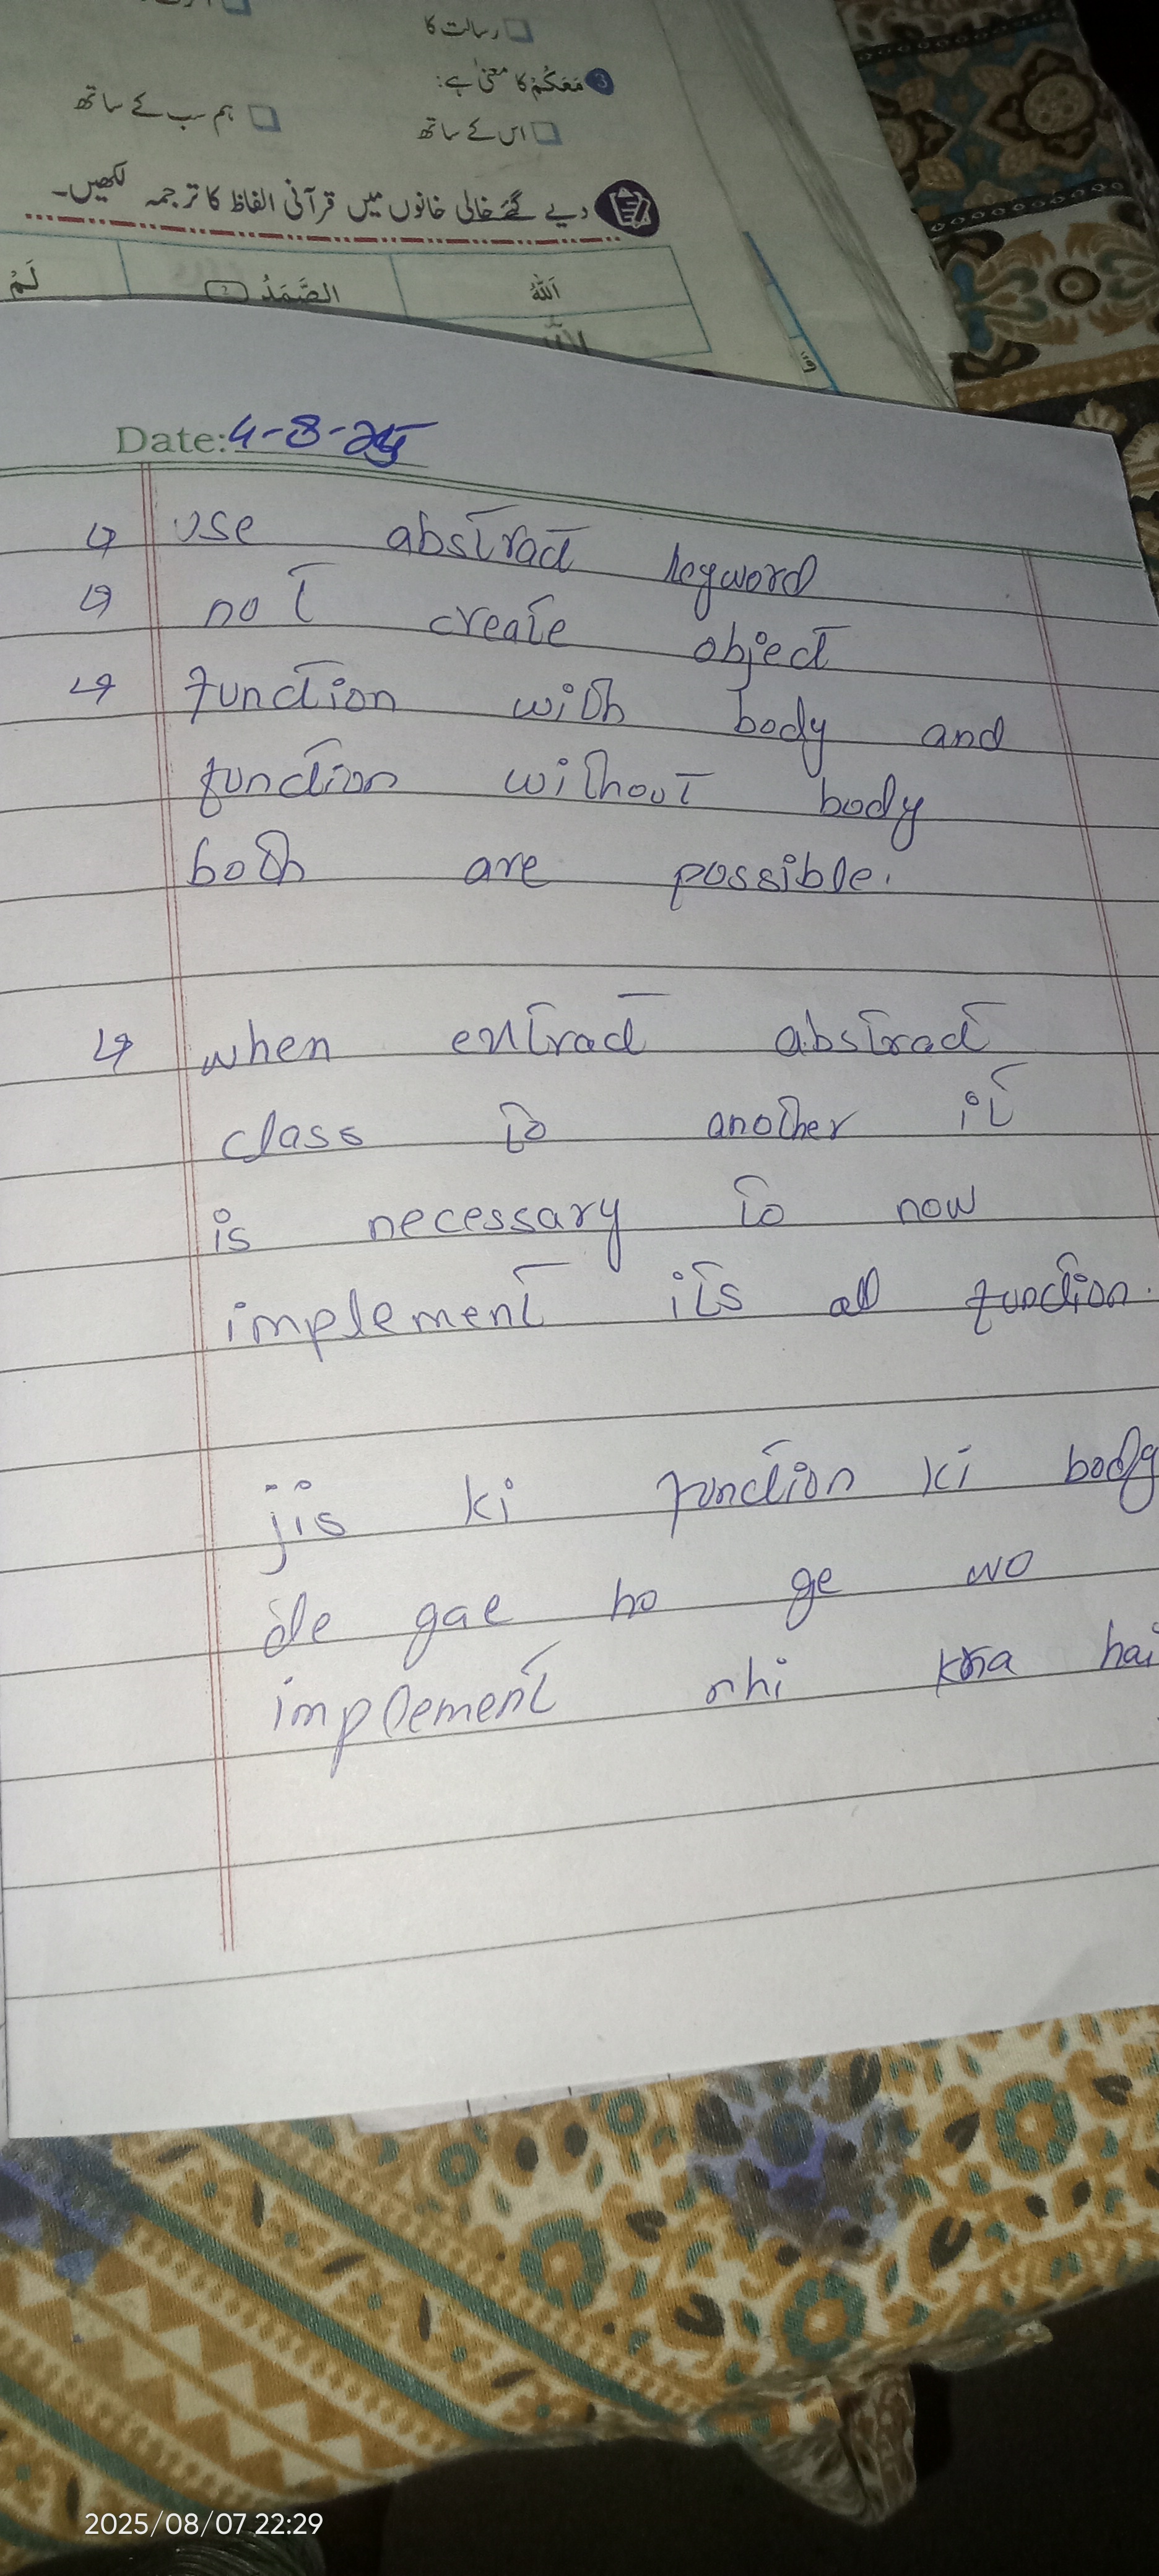 رسالت کا
3 مَعَكُمْ کا معنیٰ ہے:
اس کے ساتھ ہم سب کے ساتھ
دیے گئے خالی خانوں میں قرآنی الفاظ کا ترجمہ لکھیں۔
اَللّٰهُ الصَّمَدُ لَمْ
Date: 4-8-25
use abstract keyword
not create object
function with body and
function without body
both are possible.
when extract abstract
class to another it
is necessary to now
implement its all function.
jis ki function ki body
de gae ho ge wo
implement nhi krna hai
2025/08/07 22:29